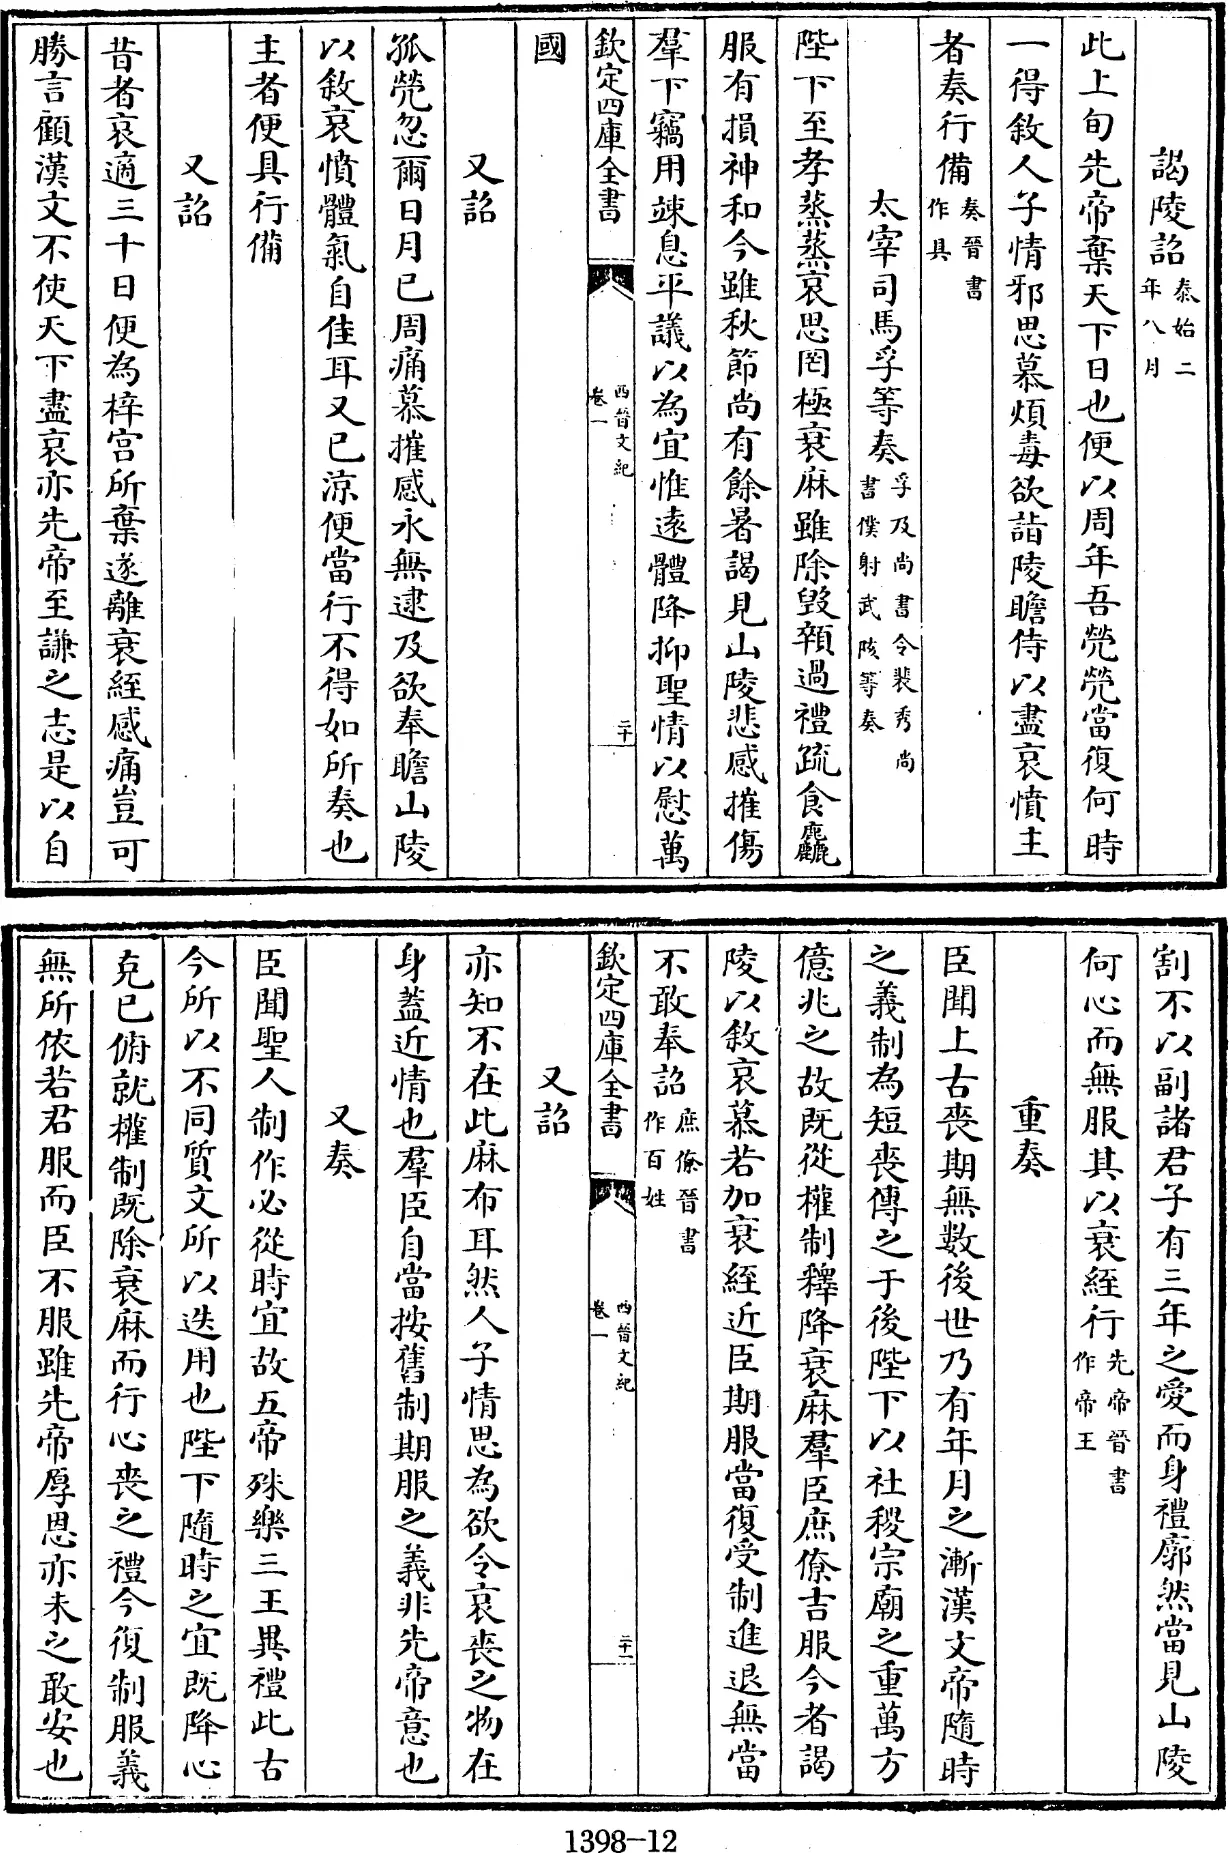 謁陵詔泰始二年八月
此上旬先帝棄天下日也便以周年吾煢煢當復何時
一得敘人子情邪思慕煩毒欲詣陵瞻侍以盡哀憤主
者奏行備奏晉書作具
太宰司馬孚等奏孚及尚書令裴秀尚書僕射武陔等奏
陛下至孝蒸蒸哀思罔極衰麻雖除毀顇過禮疏食麤
服有損神和今雖秋節尚有餘暑謁見山陵悲感摧傷
羣下竊用竦息平議以為宜惟遠體降抑聖情以慰萬
欽定四庫全書 西晉文紀卷一 二十
國
又詔
孤煢忽爾日月已周痛慕摧感永無逮及欲奉瞻山陵
以敘哀憤體氣自佳耳又已涼便當行不得如所奏也
主者便具行備
又詔
昔者哀適三十日便為梓宮所棄遂離衰絰感痛豈可
勝言顧漢文不使天下盡哀亦先帝至謙之志是以自
割不以副諸君子有三年之愛而身禮廓然當見山陵
何心而無服其以衰絰行先帝晉書作帝王
重奏
臣聞上古喪期無數後世乃有年月之漸漢文帝隨時
之義制為短喪傳之于後陛下以社稷宗廟之重萬方
億兆之故既從權制釋降衰麻羣臣庶僚吉服今者謁
陵以敘哀慕若加衰絰近臣期服當復受制進退無當
不敢奉詔庶僚晉書作百姓
欽定四庫全書 西晉文紀卷一 二十一
又詔
亦知不在此麻布耳然人子情思為欲令哀喪之物在
身蓋近情也羣臣自當按舊制期服之義非先帝意也
又奏
臣聞聖人制作必從時宜故五帝殊樂三王異禮此古
今所以不同質文所以迭用也陛下隨時之宜既降心
克已俯就權制既除衰麻而行心喪之禮今復制服義
無所依若君服而臣不服雖先帝厚恩亦未之敢安也
1398-12